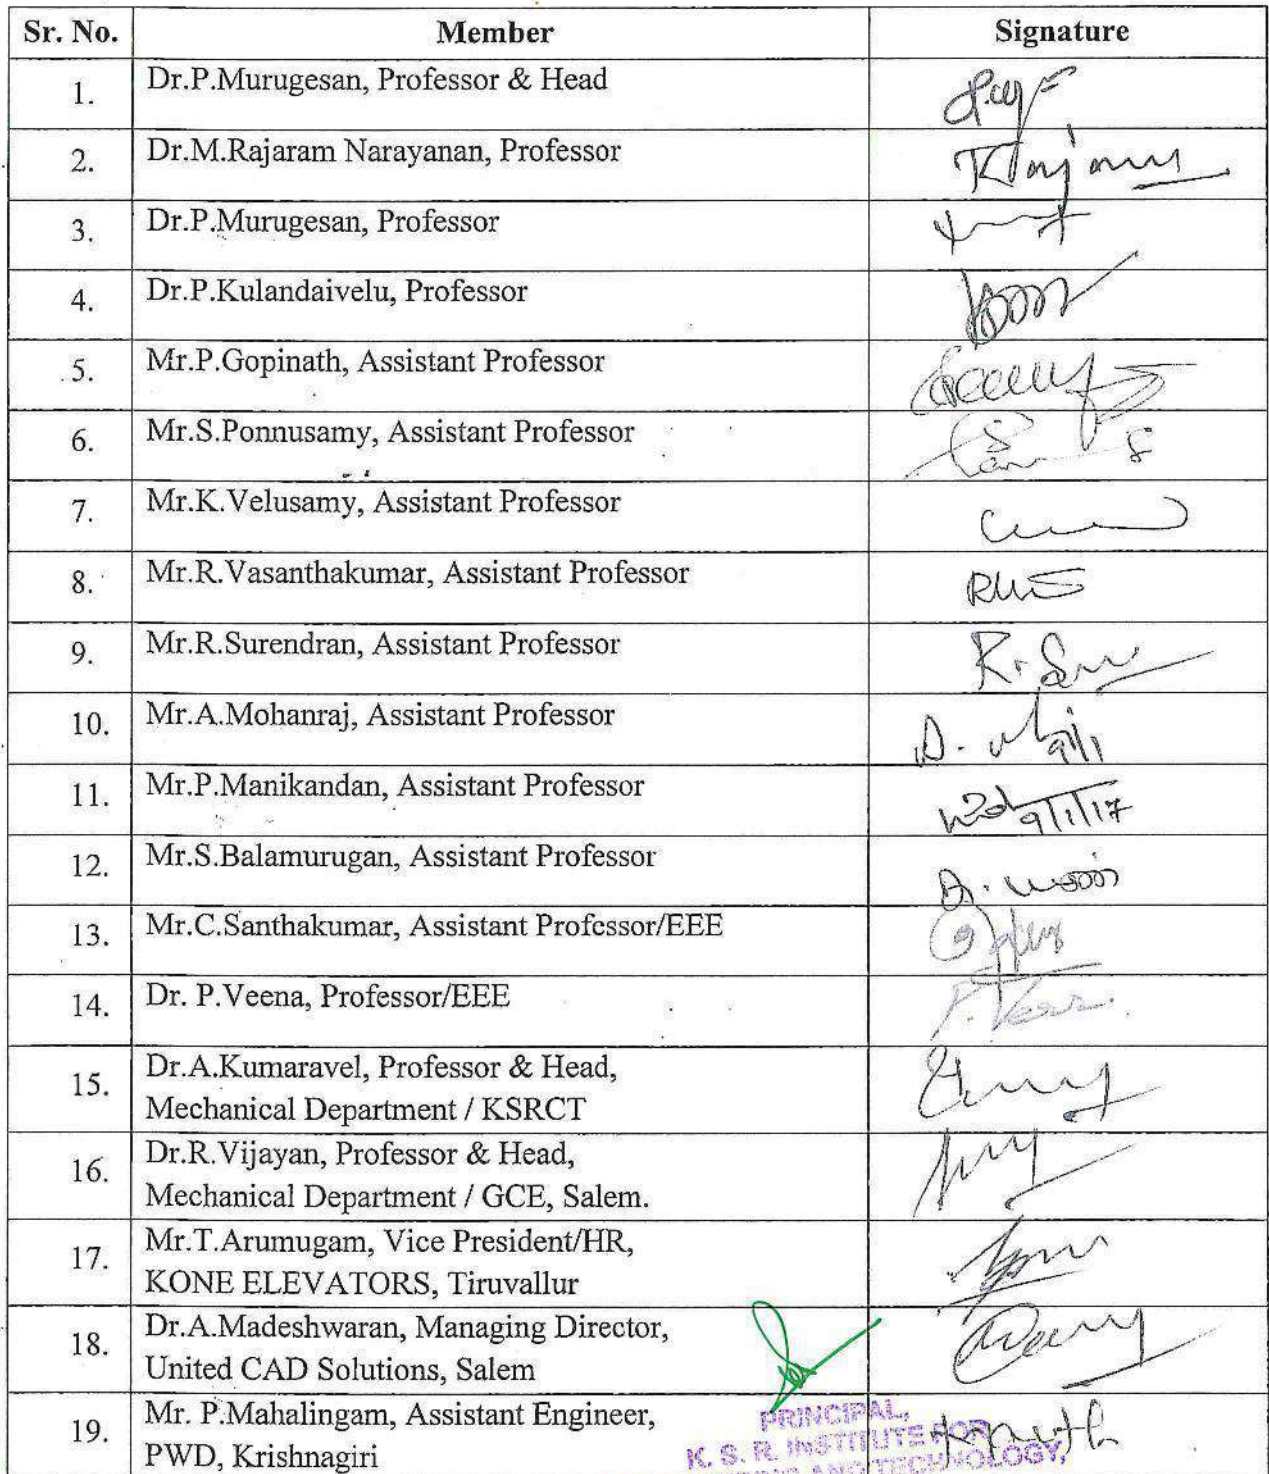 Sr. No. Member Signature
1. Dr.P.Murugesan, Professor & Head
2. Dr.M.Rajaram Narayanan, Professor
3. Dr.P.Murugesan, Professor
4. Dr.P.Kulandaivelu, Professor
5. Mr.P.Gopinath, Assistant Professor
6. Mr.S.Ponnusamy, Assistant Professor
7. Mr.K.Velusamy, Assistant Professor
8. Mr.R.Vasanthakumar, Assistant Professor
9. Mr.R.Surendran, Assistant Professor
10. Mr.A.Mohanraj, Assistant Professor 9/1
11. Mr.P.Manikandan, Assistant Professor 9/1/17
12. Mr.S.Balamurugan, Assistant Professor
13. Mr.C.Santhakumar, Assistant Professor/EEE
14. Dr. P.Veena, Professor/EEE
15. Dr.A.Kumaravel, Professor & Head,
Mechanical Department / KSRCT
16. Dr.R.Vijayan, Professor & Head,
Mechanical Department / GCE, Salem.
17. Mr.T.Arumugam, Vice President/HR,
KONE ELEVATORS, Tiruvallur
18. Dr.A.Madeshwaran, Managing Director,
United CAD Solutions, Salem
19. Mr. P.Mahalingam, Assistant Engineer,
PWD, Krishnagiri
PRINCIPAL,
K. S. R. INSTITUTE FOR
AND TECHNOLOGY,